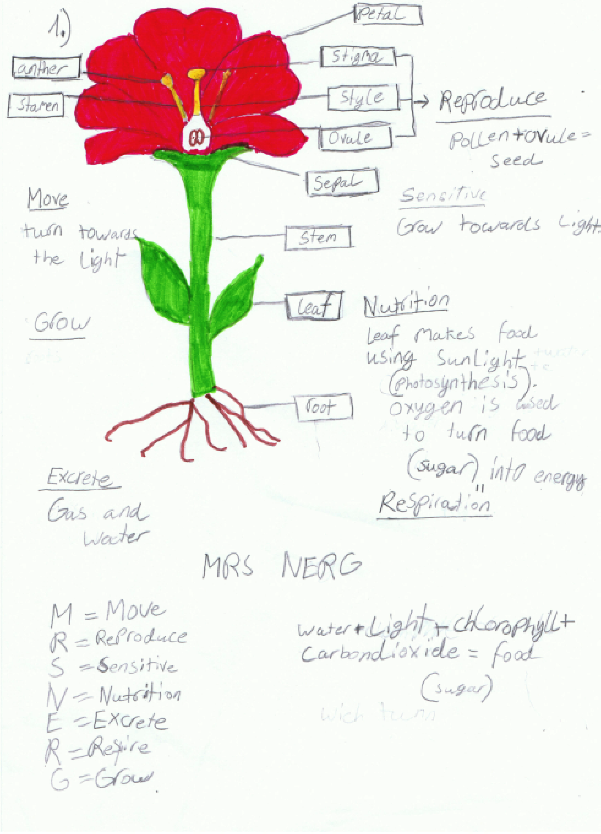 1.)
Petal
anther
Stigma
Stamen
Style
Ovule
Reproduce
Pollen + ovule =
Seed
Sepal
Move
turn towards
the Light
Sensitive
Grow towards Light.
Stem
Grow
Leaf
Nutrition
Leaf Makes food
using SunLight
(Photosynthesis).
oxygen is used
to turn food
(sugar) into energy
"
Respiration
root
Excrete
Gas and
Water
MRS NERG
M = Move
R = Reproduce
S = Sensitive
N = Nutrition
E = Excrete
R = Respire
G = Grow
water + Light + chlorophyll +
Carbondioxide = food
(sugar)
wich turn